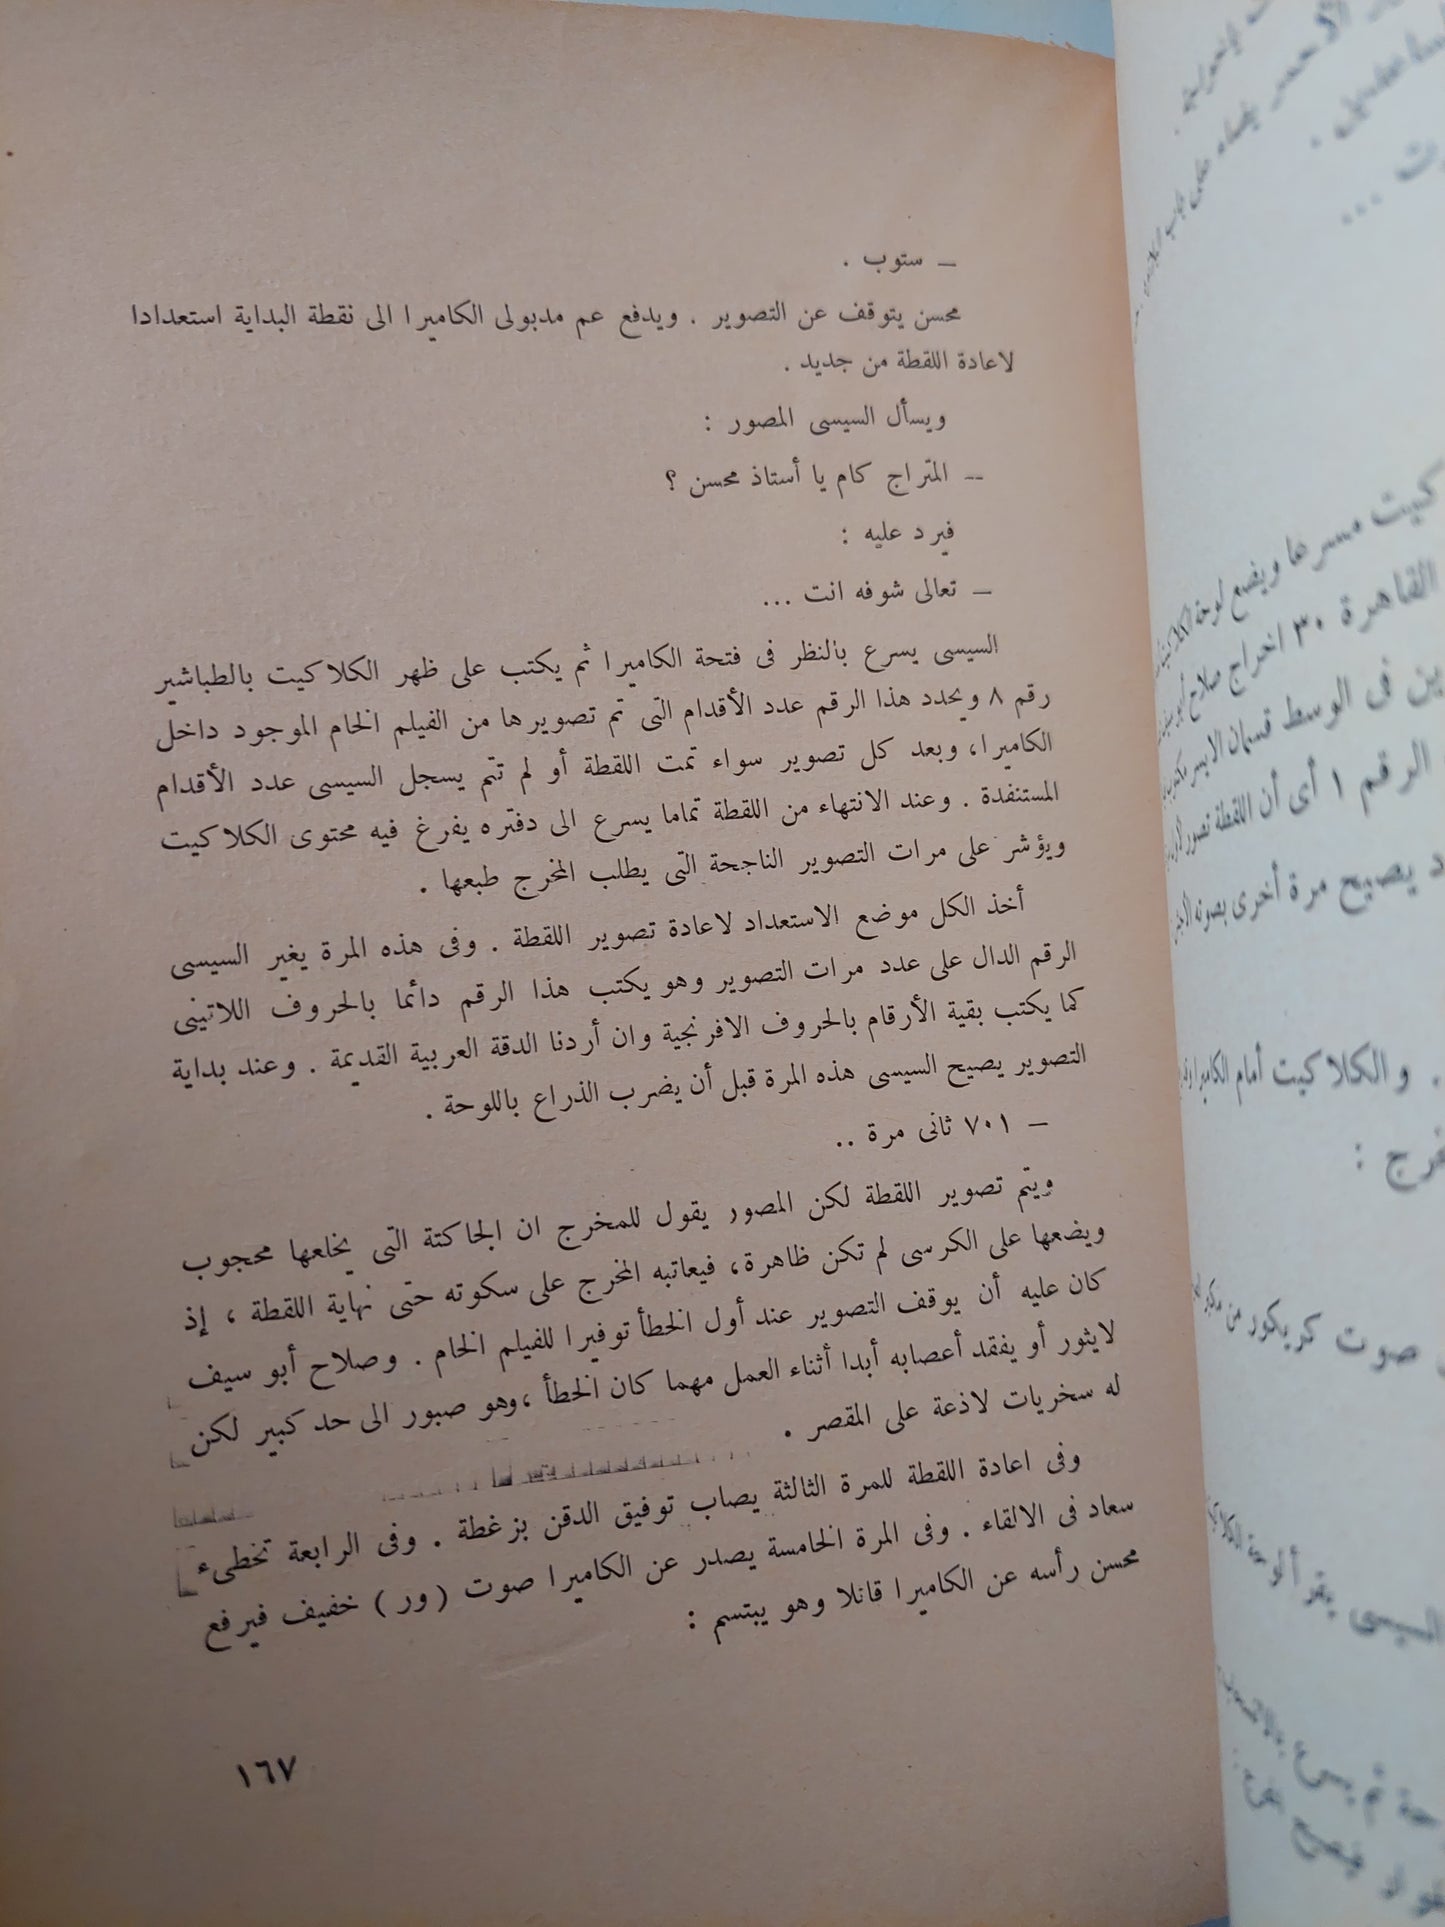 — ستوب .
محسن يتوقف عن التصوير . ويدفع عم مدبولى الكاميرا الى نقطة البداية استعدادا
لاعادة اللقطة من جديد .
ويسأل السيسى المصور :
— المتراج كام يا أستاذ محسن ؟
فيرد عليه :
— تعالى شوفه انت ...
السيسى يسرع بالنظر فى فتحة الكاميرا ثم يكتب على ظهر الكلاكيت بالطباشير
رقم ٨ ويحدد هذا الرقم عدد الأقدام التى تم تصويرها من الفيلم الخام الموجود داخل
الكاميرا، وبعد كل تصوير سواء تمت اللقطة أو لم تتم يسجل السيسى عدد الأقدام
المستنفدة . وعند الانتهاء من اللقطة تماما يسرع الى دفتره يفرغ فيه محتوى الكلاكيت
ويؤشر على مرات التصوير الناجحة التى يطلب المخرج طبعها .
أخذ الكل موضع الاستعداد لاعادة تصوير اللقطة . وفى هذه المرة يغير السيسى
الرقم الدال على عدد مرات التصوير وهو يكتب هذا الرقم دائما بالحروف اللاتينى
كما يكتب بقية الأرقام بالحروف الافرنجية وان أردنا الدقة العربية القديمة . وعند بداية
التصوير يصيح السيسى هذه المرة قبل أن يضرب الذراع باللوحة .
— ٧٠١ ثانى مرة ..
ويتم تصوير اللقطة لكن المصور يقول للمخرج ان الجاكتة التى يخلعها محجوب
ويضعها على الكرسى لم تكن ظاهرة، فيعاتبه المخرج على سكوته حتى نهاية اللقطة ، إذ
كان عليه أن يوقف التصوير عند أول الخطأ توفيرا للفيلم الخام . وصلاح أبو سيف
لايثور أو يفقد أعصابه أبدا أثناء العمل مهما كان الخطأ ،وهو صبور الى حد كبير لكن
له سخريات لاذعة على المقصر .
وفى اعادة اللقطة للمرة الثالثة يصاب توفيق الدقن بزغطة . وفى الرابعة تخطىء
سعاد فى الالقاء . وفى المرة الخامسة يصدر عن الكاميرا صوت ( ور ) خفيف فيرفع
محسن رأسه عن الكاميرا قائلا وهو يبتسم :
١٦٧
كيت مسرعا ويضع لوحة
القاهرة ٣٠ اخراج صلاح
ين فى الوسط قسمان الايسر
الرقم ١ أى أن اللقطة تصور
د يصيح مرة أخرى بصوته
. والكلاكيت أمام الكاميرا
صوت كريكور من